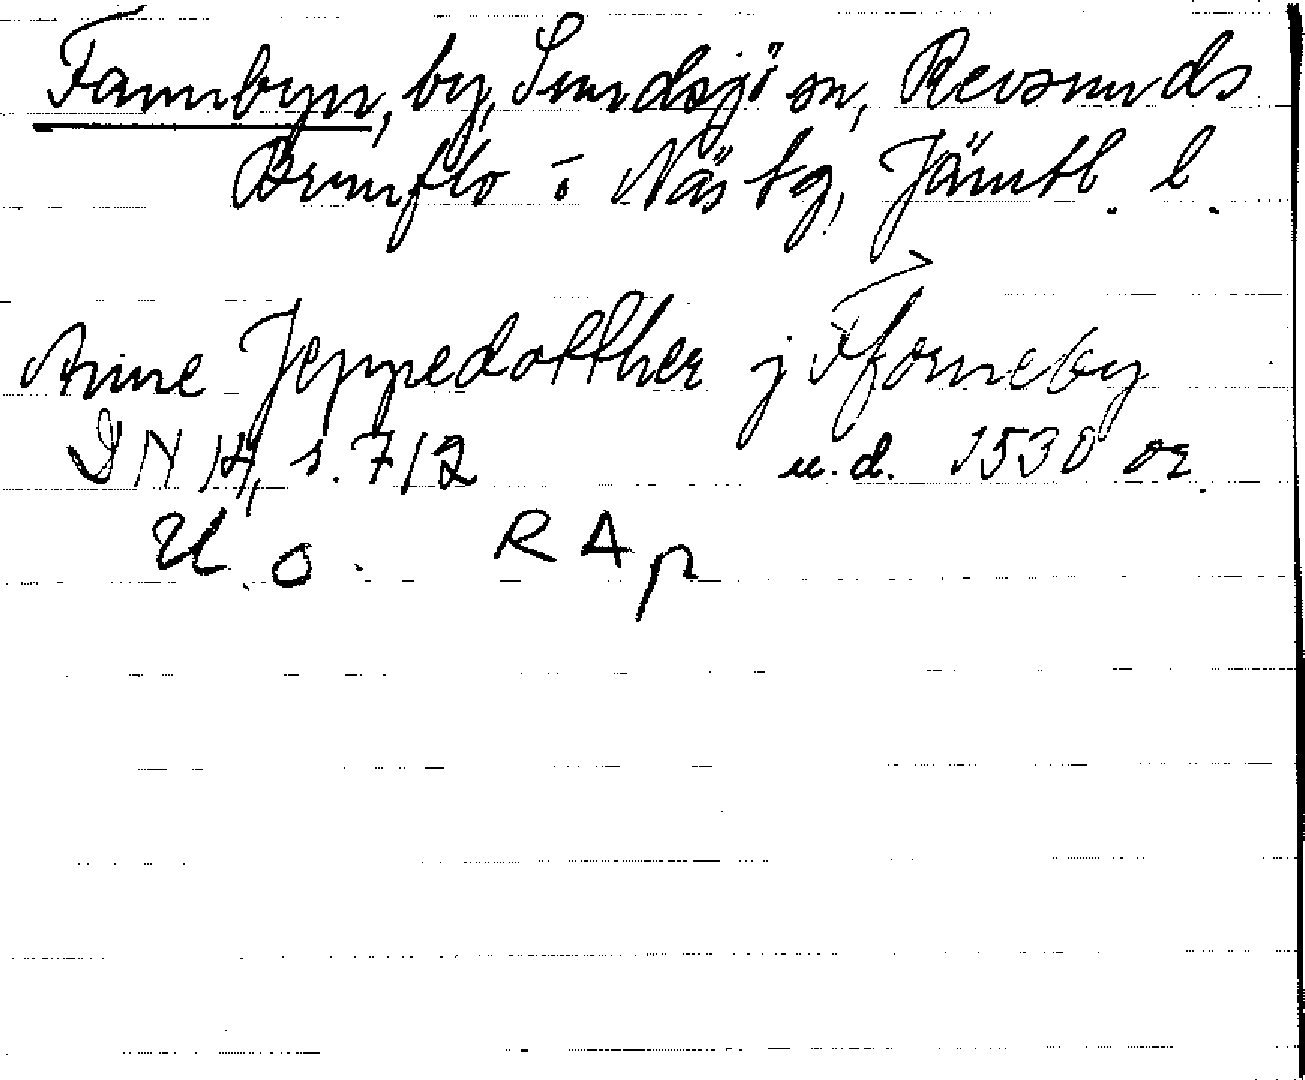 Fannbyn, by, Sundsjö sn, Revsunds
Brunflo o Näs tg, Jämtl. l.
Anne Jeppedotther j Fforneby
DN 14, s. 712 u.d. 1530 or.
U. o. RAp